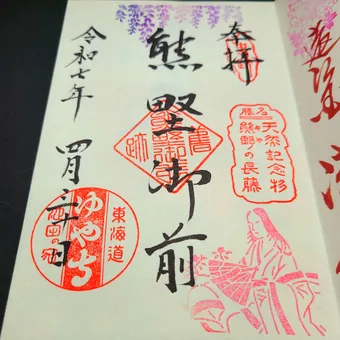 奉拝
名勝
天然記念物
熊野の長藤
熊野御前
舊蹟
令和七年
四月二十日
東海道
ゆや寺
池田の宿